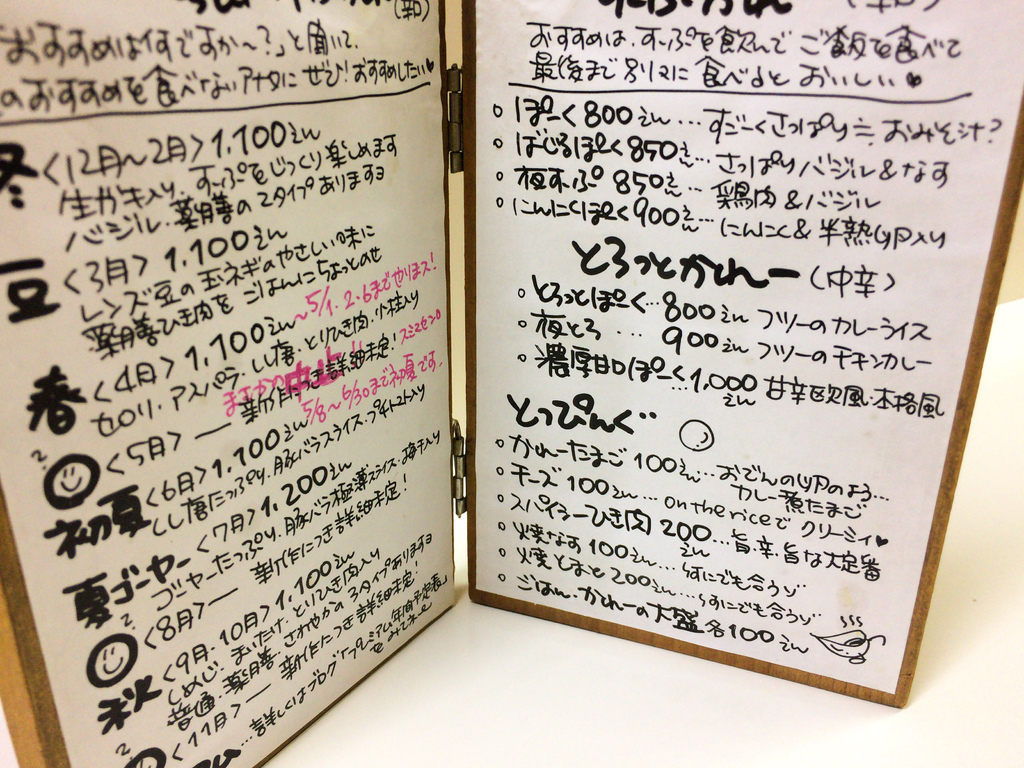 「おすすめは何ですか〜？」と聞いて、
のおすすめを食べないアナタにぜひ！おすすめしたい♥
冬〈12月〜2月〉1,100えん
生ガキ入り、すーぷをじっくり楽しめます
バジル、薬膳の2タイプありますヨ
豆〈3月〉1,100えん
レンズ豆の玉ネギのやさしい味に
薬膳ひき肉をごはんにちょっとのせ
〜5/1.2.6までやりまス！
春〈4月〉1,100えん
セロリ・アスパラ・しし唐・とりひき肉・小柱入り
まさかの中止!!
スミマセン
?〈5月〉— 新作につき詳細未定！
5/8〜6/30まで初夏です。
初夏〈6月〉1,100えん
しし唐たっぷり、豚バラスライス・プチトマト入り
夏ゴーヤー〈7月〉1,200えん
ゴーヤーたっぷり、豚バラ極薄スライス・梅干入り
?〈8月〉— 新作につき詳細未定！
秋〈9月・10月〉1,100えん
しめじ・まいたけ・とりひき肉入り
普通・薬膳・さわやかの3タイプありますヨ
?〈11月〉— 新作につき詳細未定！
…詳しくはブログ「プレミアム年間予定表」
みてネ
すーぷかれー（辛口）
おすすめは、すーぷを飲んでご飯を食べて
最後まで別々に食べるとおいしい♥
○ぽーく800えん…すごーくさっぱり≒おみそ汁？
○ばじるぽーく850えん…さっぱりバジル&なす
○夜すーぷ850えん…鶏肉&バジル
○にんにくぽーく900えん…にんにく&半熟卵入り
とろっとかれー（中辛）
○とろっとぽーく…800えん フツーのカレーライス
○夜とろ…900えん フツーのチキンカレー
○濃厚甘口ぽーく…1,000えん 甘辛欧風・本格風
とっぴんぐ
○かれーたまご100えん…おでんの卵のよう…
カレー煮たまご
○チーズ100えん…on the riceでクリーミィ♥
○スパイシーひき肉200えん…旨・辛・旨な大定番
○焼なす100えん…何にでも合うゾ
○焼とまと200えん…何にでも合うゾ
○ごはん・かれーの大盛各100えん